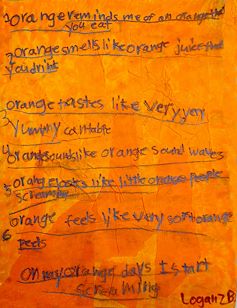 1 orange reminds me of an orange that
you eat
2 orange smells like orange juice that
you drink
orange tastes like very very
3 yummy
4 orange sounds like orange sound waves
5 orange looks like little orange people
screaming
orange feels like very soft orange
6 Peels
On my orange days I start
screaming
Logan 2B